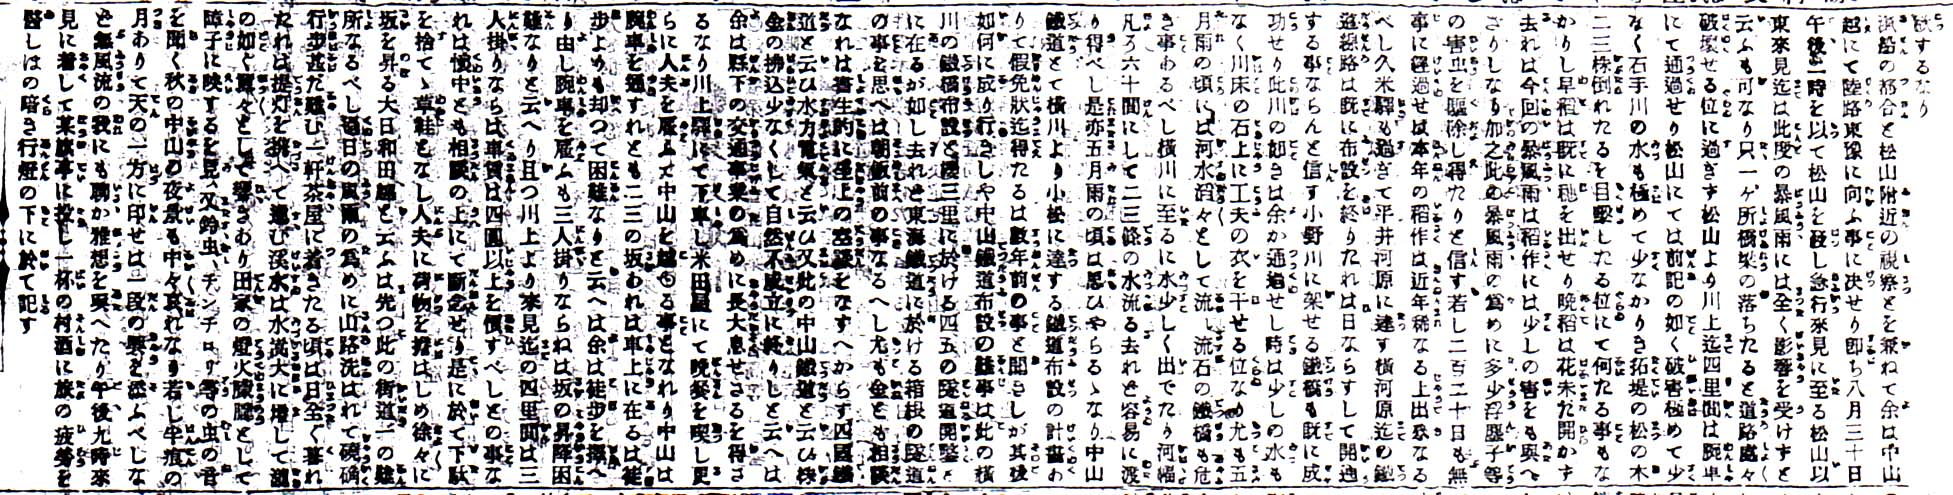 欲するなり
滊船の都合と松山附近の視察とを兼ねて余は中山
越にて陸路東豫に向ふ事に決せり即ち八月三十日
午後一時を以て松山を發し急行來見に至る松山以
東來見迄は此度の暴風雨には全く影響を受けずと
云ふも可なり只一ヶ所橋梁の落ちたると道路處々
破壞せる位に過ぎず松山より川上迄四里間は腕車
にて通過せり松山にては前記の如く破害極めて少
なく石手川の水も極めて少なかりき拓堤の松の木
二三株倒れたるを目撃したる位にて何たる事もな
かりし早稻は既に穗を出せり晩稻は花未た開かす
去れは今回の暴風雨は稻作には少しの害をも與へ
ざりしなり加之此の暴風雨の爲めに多少浮塵子等
の害虫を驅除し得たりと信す若し二百二十日も無
事に經過せは本年の稻作は近年稀なる上出來なる
べし久米驛も過ぎて平井河原に達す横河原迄の鐵
道線路は既に布設を終りたれは日ならすして開通
する事ならんと信す小野川に架せる鐵橋も既に成
功せり此川の如きは余か通過せし時は少しの水も
なく川床の石上に工夫の衣を干せる位なり尤も五
月雨の頃には河水滔々として流し流石の鐵橋も危
き事あるべし横川に至るに水少しく出でたり河幅
凡ろ六十間にして二三條の水流る去れと容易に渡
り得べし是亦五月雨の頃は思ひやらるゝなり中山
鐵道とて横川より小松に達する鐵道布設の計畫あ
りて假免狀迄得たるは數年前の事と聞きしが其後
如何に成り行きしや中山鐵道布設の難事は此の横
川の鐵橋布設と櫻三里に於ける四五の隧道開鑿と
に在るが如し去れと東海鐵道に於ける箱根の隧道
の事を思へは朝飯前の事なるへし尤も金とも相談
なれは書生的に坐上の空談をなすへからす四國鐵
道と云ひ水力電氣と云ひ又此の中山鐵道と云ひ株
金の拂込少なくして自然不成立に終りしと云へは
余は縣下の交通事業の爲めに長大息せさるを得さ
るなり川上驛にて下車し米田屋にて晩餐を喫し更
らに人夫を雇ふて中山を越ゆる事となれり中山は
腕車を通すれとも二三の坂あれは車上に在るは徒
歩よりも却つて困難なりと云へは余は徒歩を擇へ
り由し腕車を雇ふも三人掛りならねは坂の昇降困
難なりと云へり且つ川上より來見迄の四里間は三
人掛りならは車賃は四圓以上を價すべしとの事な
れは懷中とも相談の上にて斷念せり是に於て下駄
を捨てゝ草鞋となし人夫に荷物を擔はしめ徐々に
坂を昇る大日和田越と云ふは先つ此の街道一の難
所なるべし過日の風雨の爲めに山路洗はれて磽确
行歩甚だ難む一軒茶屋に着きたる頃は日全く暮れ
たれは提灯を携へて進む溪水は水嵩大に増して瀧
の如く轟々として響きあり田家の燈火朦朧として
障子に映するを見又鈴虫、チンチロリ等の虫の音
を聞く秋の中山の夜景も中々哀れなり若し半痕の
月ありて天の一方に印せは一段の興を添ふべしな
と無風流の我にも聊か雅想を與へたり午後九時來
見に着して某旅亭に投し一杯の村酒に旅の疲勞を
醫しほの暗き行燈の下に於て記す